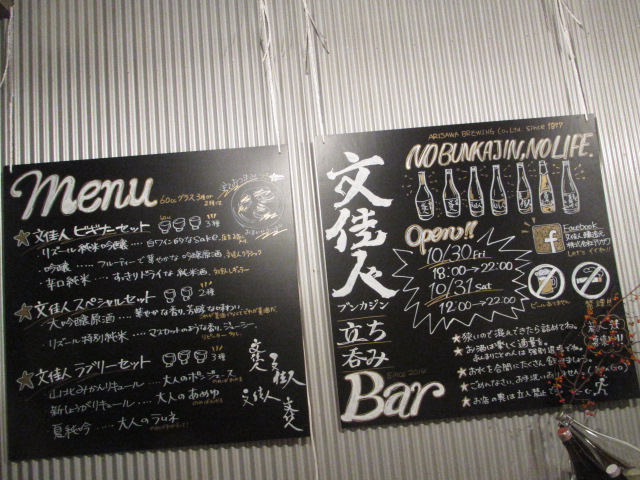 Menu
60cc グラス3種 or 2種
文佳人 ビギナーセット 3種
リズール純米吟醸 … 白ワイン的なSake.
吟醸 …… フルーティーで華やかな吟醸原酒.
辛口純米 … すっきりドライな純米酒.
文佳人 スペシャルセット 2種
大吟醸原酒 …
リズール特別純米 … マスカットのような香り.ジューシー.
文佳人 ラブリーセット 3種
山北みかんリキュール … 大人のポンジュース
新しょうがリキュール … 大人のあめゆ
夏純吟 … 大人のラムネ
文佳人
文佳人
文佳人
文佳人
ARISAWA BREWING Co., Ltd. Since 1877
NO BUNKAJIN, NO LIFE.
文佳人
ブンカジン
立ち
呑み
Since 2014
Bar
Open!!
10/30 Fri
18:00→22:00
10/31 Sat
12:00→22:00
Facebook
文佳人醸造元
株式会社アリサワ
Let's イイネ!!
ビールありません
禁煙!!
狭いので混んできたら詰めてね。
お酒は楽しく適量を。
お水も合間にたくさん飲みましょう。
ごめんなさい、お手洗い
お店の奥は立入禁止で